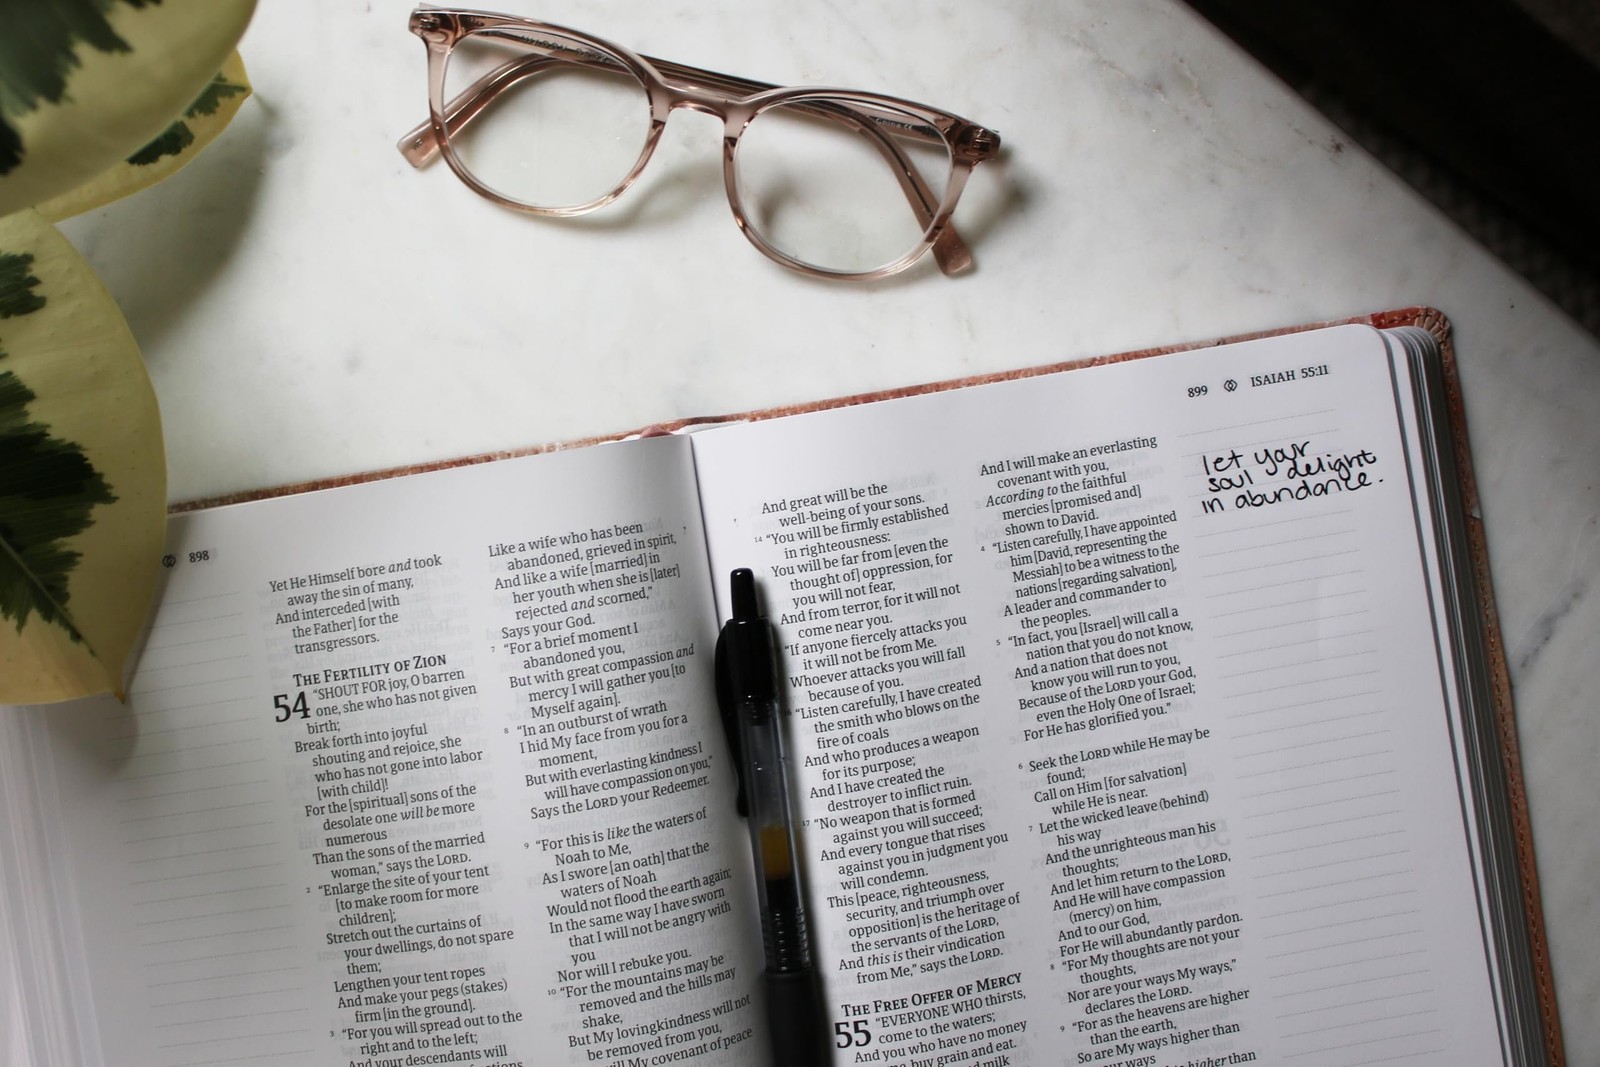 898
Yet He Himself bore and took
away the sin of many,
And interceded [with
the Father] for the
transgressors.
THE FERTILITY OF ZION
54 "SHOUT FOR joy, O barren
one, she who has not given
birth;
Break forth into joyful
shouting and rejoice, she
who has not gone into labor
[with child]!
For the [spiritual] sons of the
desolate one will be more
numerous
Than the sons of the married
woman," says the LORD.
2 "Enlarge the site of your tent
[to make room for more
children];
Stretch out the curtains of
your dwellings, do not spare
them;
Lengthen your tent ropes
And make your pegs (stakes)
firm [in the ground].
3 "For you will spread out to the
right and to the left;
And your descendants will
Like a wife who has been
abandoned, grieved in spirit,
And like a wife [married] in
her youth when she is [later]
rejected and scorned,"
Says your God.
7 "For a brief moment I
abandoned you,
But with great compassion and
mercy I will gather you [to
Myself again].
8 "In an outburst of wrath
I hid My face from you for a
moment,
But with everlasting kindness I
will have compassion on you,"
Says the LORD your Redeemer.
9 "For this is like the waters of
Noah to Me,
As I swore [an oath] that the
waters of Noah
Would not flood the earth again;
In the same way I have sworn
that I will not be angry with
you
Nor will I rebuke you.
10 "For the mountains may be
removed and the hills may
shake,
But My lovingkindness will not
be removed from you,
will My covenant of peace
899 ISAIAH 55:11
And great will be the
well-being of your sons.
14 "You will be firmly established
in righteousness:
You will be far from [even the
thought of] oppression, for
you will not fear,
And from terror, for it will not
come near you.
"If anyone fiercely attacks you
it will not be from Me.
Whoever attacks you will fall
because of you.
"Listen carefully, I have created
the smith who blows on the
fire of coals
And who produces a weapon
for its purpose;
And I have created the
destroyer to inflict ruin.
17 "No weapon that is formed
against you will succeed;
And every tongue that rises
against you in judgment you
will condemn.
This [peace, righteousness,
security, and triumph over
opposition] is the heritage of
the servants of the LORD,
And this is their vindication
from Me," says the LORD.
THE FREE OFFER OF MERCY
55 "EVERYONE WHO thirsts,
come to the waters;
And you who have no money
buy grain and eat.
milk
And I will make an everlasting
covenant with you,
According to the faithful
mercies [promised and]
shown to David.
4 "Listen carefully, I have appointed
him [David, representing the
Messiah] to be a witness to the
nations [regarding salvation],
A leader and commander to
the peoples.
5 "In fact, you [Israel] will call a
nation that you do not know,
And a nation that does not
know you will run to you,
Because of the LORD your God,
even the Holy One of Israel;
For He has glorified you."
6 Seek the LORD while He may be
found;
Call on Him [for salvation]
while He is near.
7 Let the wicked leave (behind)
his way
And the unrighteous man his
thoughts;
And let him return to the LORD,
And He will have compassion
(mercy) on him,
And to our God,
For He will abundantly pardon.
8 "For My thoughts are not your
thoughts,
Nor are your ways My ways,"
declares the LORD.
9 "For as the heavens are higher
than the earth,
So are My ways higher than
your ways
higher than
let your
soul delight
in abundance.